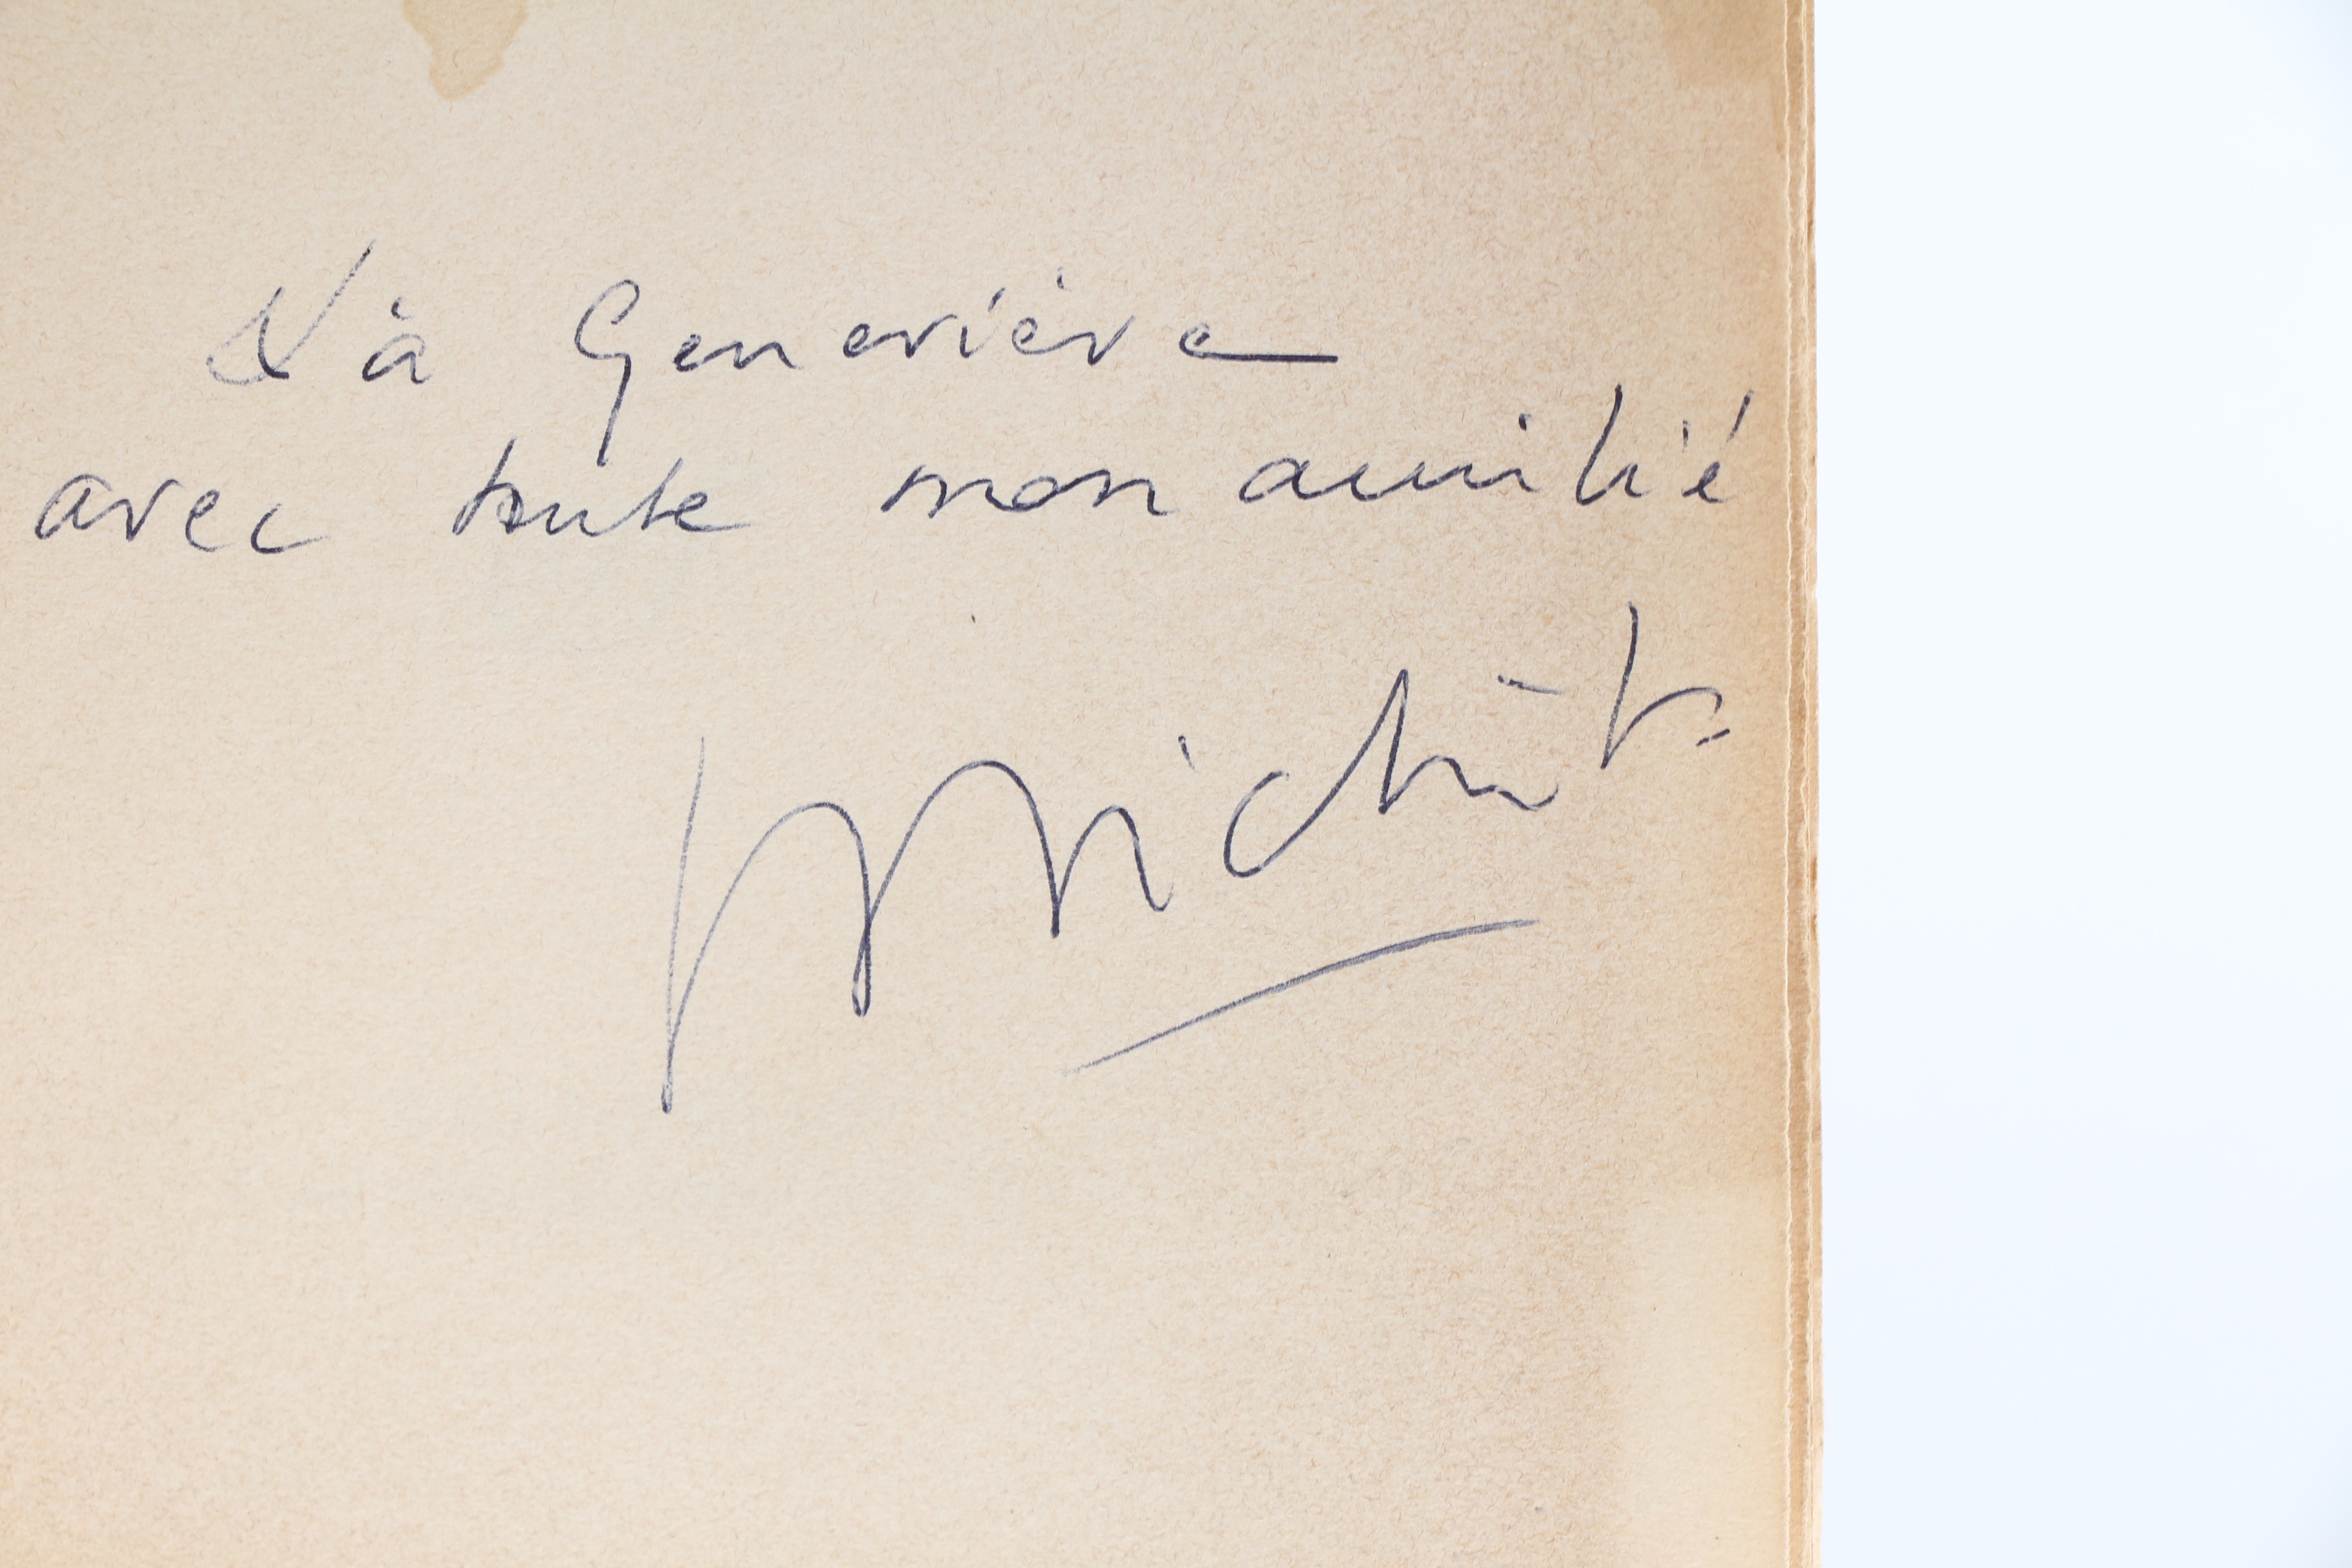 à Geneviève
avec toute mon amitié